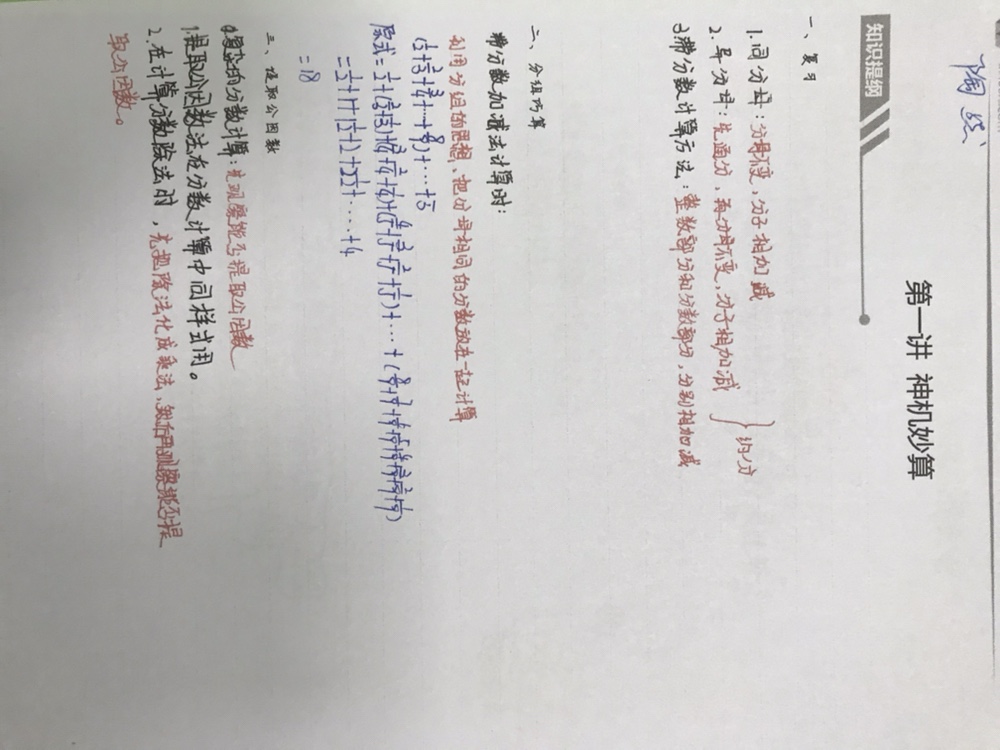 陶然
第一讲 神机妙算
知识提纲
一、复习
1.同分母：分母不变，分子相加减
2.异分母：先通分，再分母不变，分子相加减 } 约分
3.带分数计算方法：整数部分和分数部分，分别相加减
二、分组巧算
带分数加减法计算时：
利用分组的思想、把分母相同的分数放在一起计算
=1/2+1+1 1/2+2+2 1/2+…+4
=18
三、提取公因数
复杂的分数计算：先观察能否提取公因数
1.提取公因数法在分数计算中同样适用。
2.在计算分数除法时，先把除法化成乘法，然后再观察能否提
取公因数。